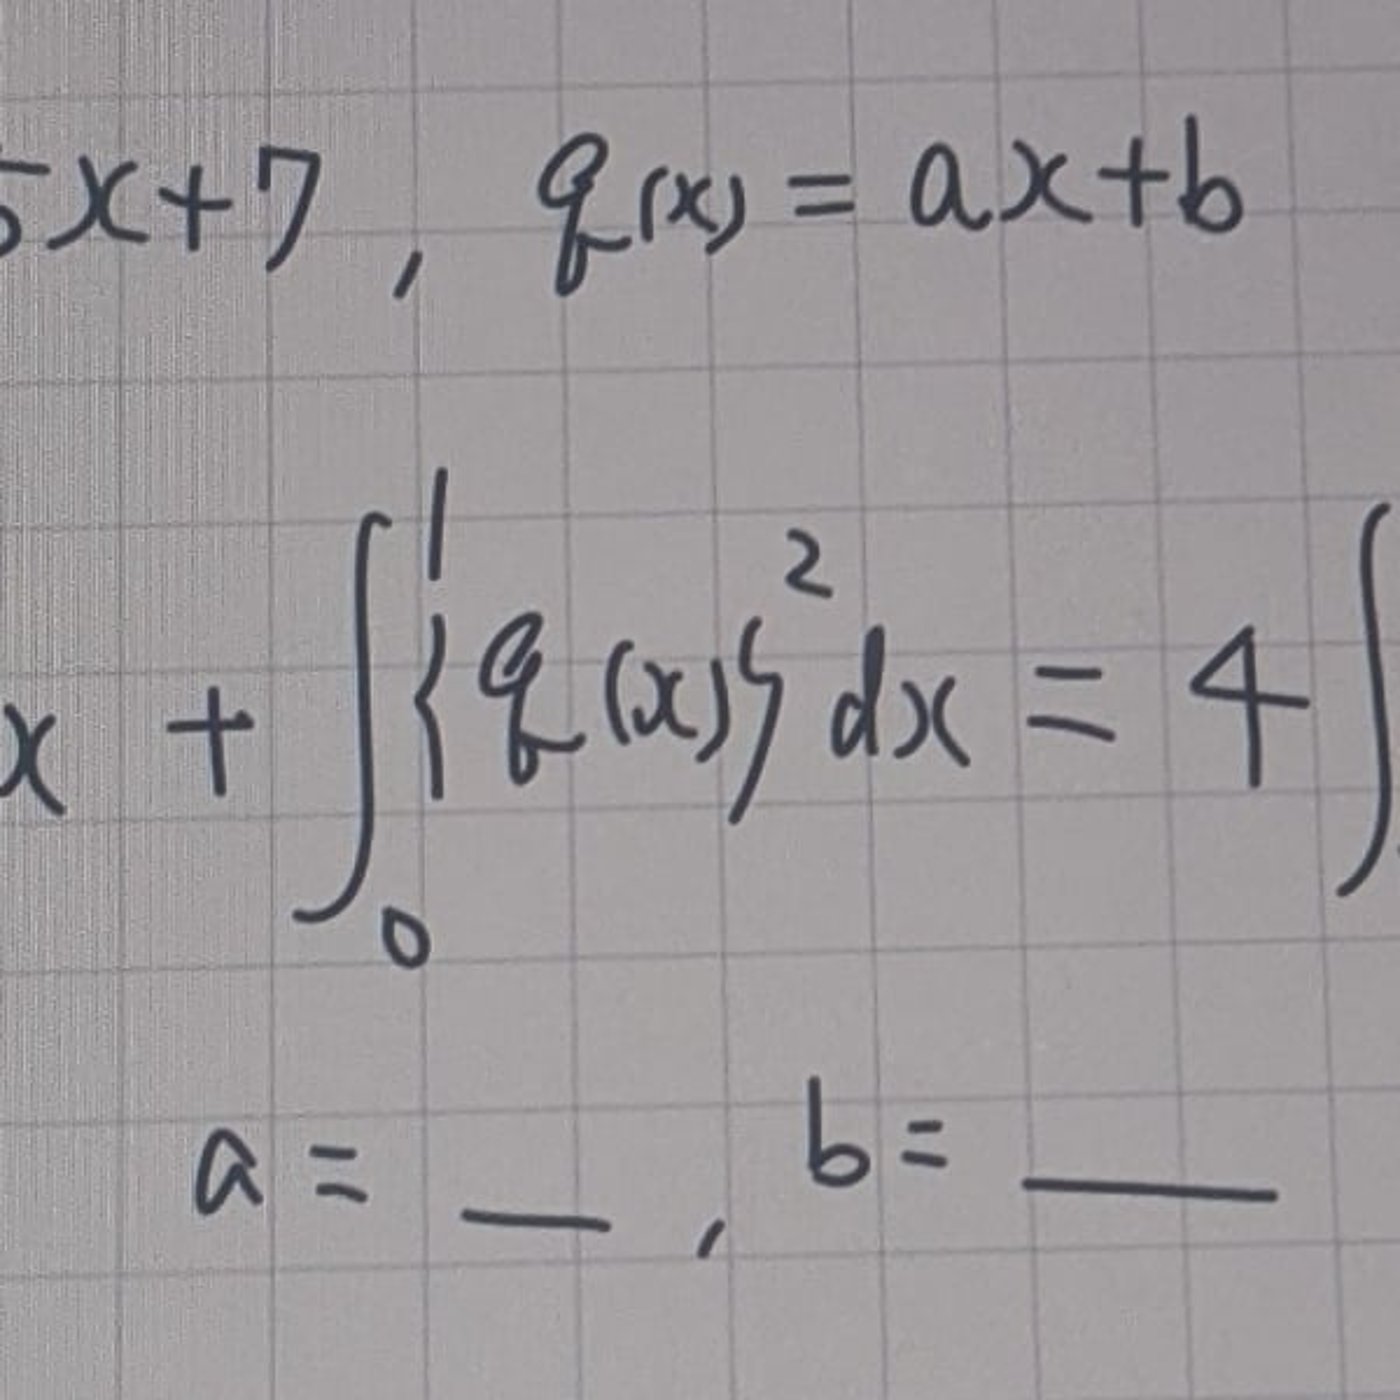 5x+7, q(x) = ax+b
x + ∫₀¹ {q(x)}² dx = 4 ∫
a = __, b = __